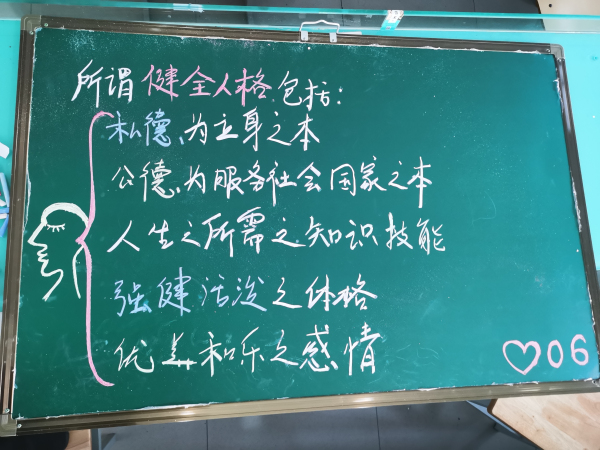 所谓健全人格包括:
私德、为立身之本
公德、为服务社会国家之本
人生之所需之知识技能
强健活泼之体格
优美和乐之感情
06